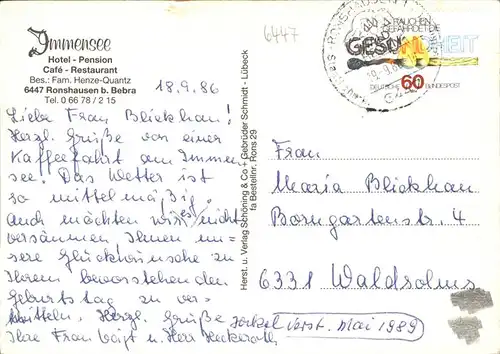 Immensee
Hotel - Pension
Café - Restaurant
Bes.: Fam. Henze-Quantz
6447 Ronshausen b. Bebra
Tel. 0 66 78 / 2 15
6447
18.9.86
Liebe Frau Blickhan!
Herzl. Grüße von einer
Kaffeefahrt am Immen-
see. Das Wetter ist
so mittelmäßig.
Auch möchten wir es nicht
versäumen Ihnen un-
sere Glückwünsche zu
Ihrem bevorstehenden
Geburtstag zu über-
mitteln. Herzl. Grüße
Ihre Frau Voigt u. Herr
verst. Mai 1989
Herst. u. Verlag Schöning & Co + Gebrüder Schmidt - Lübeck
fa Bestellnr. Rons 29
RAUCHEN
GEFÄHRDET DIE
GESUNDHEIT
60
DEUTSCHE BUNDESPOST
Frau
Maria Blickhan
Borngartenstr. 4
6331 Waldsolms